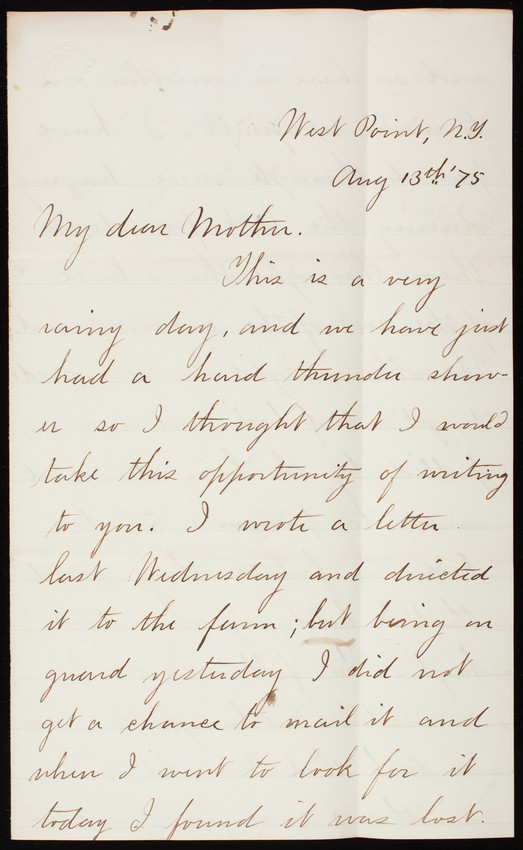 West Point, N.Y.
Aug 13th '75
My dear Mother.
This is a very
rainy day, and we have just
had a hard thunder show-
er so I thought that I would
take this opportunity of writing
to you. I wrote a letter
last Wednesday and directed
it to the farm; but being on
guard yesterday I did not
get a chance to mail it and
when I went to look for it
today I found it was lost.